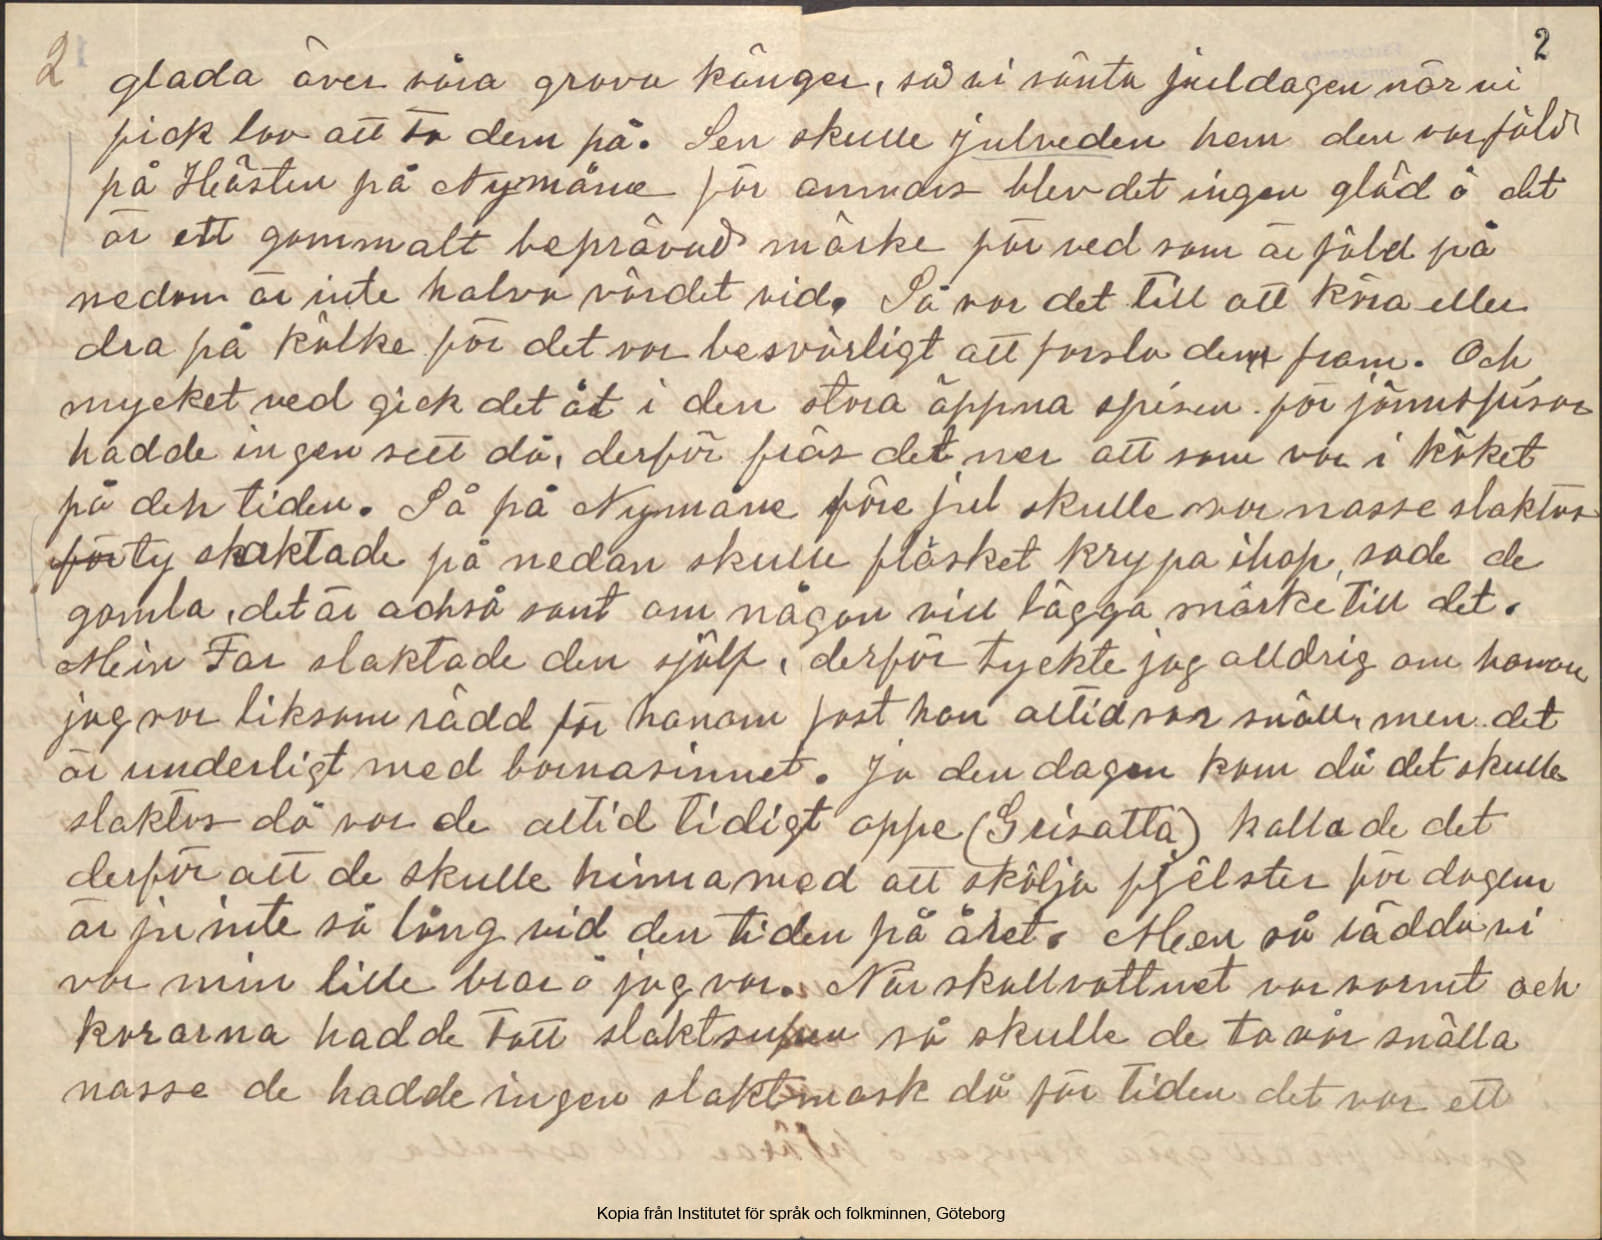 2
2
glada över våra grova känger, så vi vänta juldagen när vi
fick lov att ta dem på. Sen skulle julveden hem den var fäld
på Hösten på Nymåne för annars blev det ingen glöd ò det
är ett gammalt beprövad märke för ved som är fäld på
nedan är inte halva värdet vid. Så var det till att köra eller
dra på kälke för det var besvärligt att forsla dem fram. Och
mycket ved gick det åt i den stora öppna spisen för järnspisar
hadde ingen sett då, derför frös det ner att som var i köket
på den tiden. Så på Nymåne före jul skulle vår nasse slaktas
för ty slaktade på nedan skulle fläsket krypa ihop, sade de
gamla, det är också sant om någon vill lägga märke till det.
Mein Far slaktade den själf, derför tyckte jag alldrig om honom
jag var liksom rädd för honom fast han altid var snäll, men det
är underligt med barnasinnet. Ja den dagen kom då det skulle
slaktas då var de altid tidigt oppe (Grisatta) kallade det
derför att de skulle hinna med att skölja fjälster för dagen
är ju inte så lång vid den tiden på året. Men så rädda vi
var min lille bror ò jag var. När skållvattnet var varmt och
kararna hadde tatt slaktsupen så skulle de ta vår snälla
nasse de hadde ingen slaktmask då för tiden det var ett
Kopia från Institutet för språk och folkminnen, Göteborg